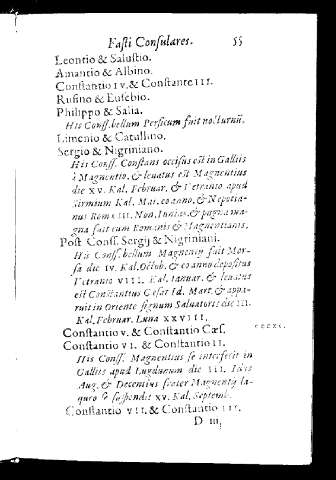 Fasti Consulares. 55
Leontio & Salustio.
Amantio & Albino.
Constantio IV. & Constante III.
Rufino & Eusebio.
Philippo & Salia.
His Conss. bellum Persicum fuit nocturnū.
Limenio & Catullino.
Sergio & Nigriniano.
His Conss. Constans occisus est in Galliis
à Magnentio, & levatus est Magnentius
die XV. Kal. Februar. & Vetranio apud
Sirmium Kal. Mai. eo anno, & Nepotia-
nus Romæ III. Non. Iunias, & pugna ma-
gna fuit cum Romanis & Magnentianis.
Post Conss. Sergij & Nigriniani.
His Conss. bellum Magnentij fuit Mor-
sa die IV. Kal. Octob. & eo anno depositus
Vetranio VIII. Kal. Ianuar. & levatus
est Constantius Cæsar Id. Mart. & appa-
ruit in Oriente signum Salvatoris die III.
Kal. Februar. Luna XXVIII.
Constantio V. & Constantio Cæs.
Constantio VI. & Constantio II.
His Conss. Magnentius se interfecit in
Galliis apud Lugdunum die III. Idus
Aug. & Decentius frater Magnentij la-
queo se suspendit XV. Kal. Septemb.
Constantio VII. & Constantio III.
D iij